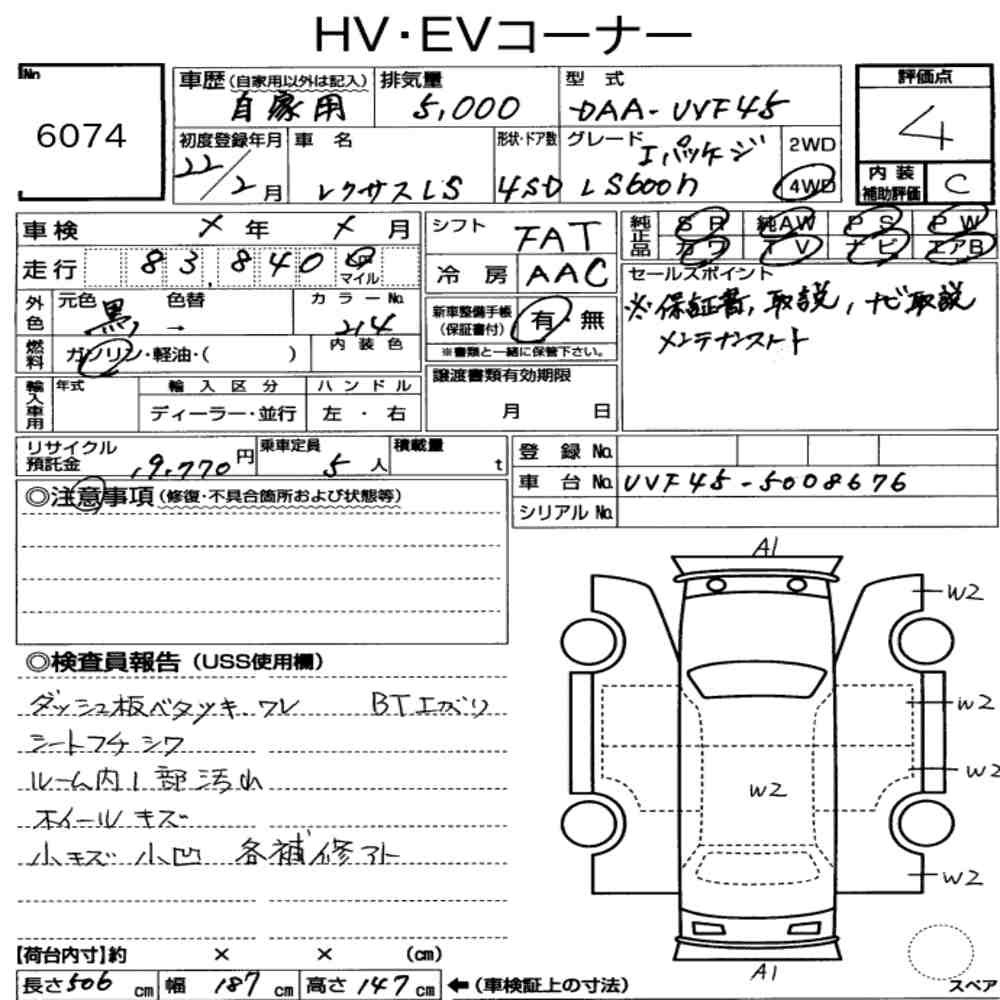 HV・EVコーナー
No 6074
車歴(自家用以外は記入) 自家用
排気量 5,000
型式 DAA-UVF45
評価点 4
初度登録年月 22/2月
車名 レクサスLS
形状・ドア数 4SD
グレード Iパッケージ LS600h
2WD
4WD
内装補助評価 C
車検 メ年 メ月
走行 83,840 キロ マイル
外色 元色 黒 色替 → カラーNo. 214
燃料 ガソリン・軽油・( ) 内装色
輸入車用 年式 輸入区分 ハンドル
ディーラー・並行 左・右
シフト FAT
冷房 AAC
新車整備手帳(保証書付) 有・無
※書類と一緒に保管下さい。
譲渡書類有効期限
月 日
純正品 SR 純AW PS PW
カワ TV ナビ エアB
セールスポイント
※保証書,取説,ナビ取説
メンテナンスノート
リサイクル預託金 19,770円
乗車定員 5人
積載量 t
登録No.
車台No. UVF45-5008676
シリアルNo.
◎注意事項(修復・不具合箇所および状態等)
◎検査員報告(USS使用欄)
ダッシュ板ベタツキ.ワレ BTエグリ
シートフチシワ
ルーム内1部汚れ
ホイールキズ
小キズ 小凹 各補修アト
【荷台内寸】約 × × (cm)
長さ506cm 幅187cm 高さ147cm ←(車検証上の寸法)
A1
W2
W2
W2
W2
W2
A1
スペア